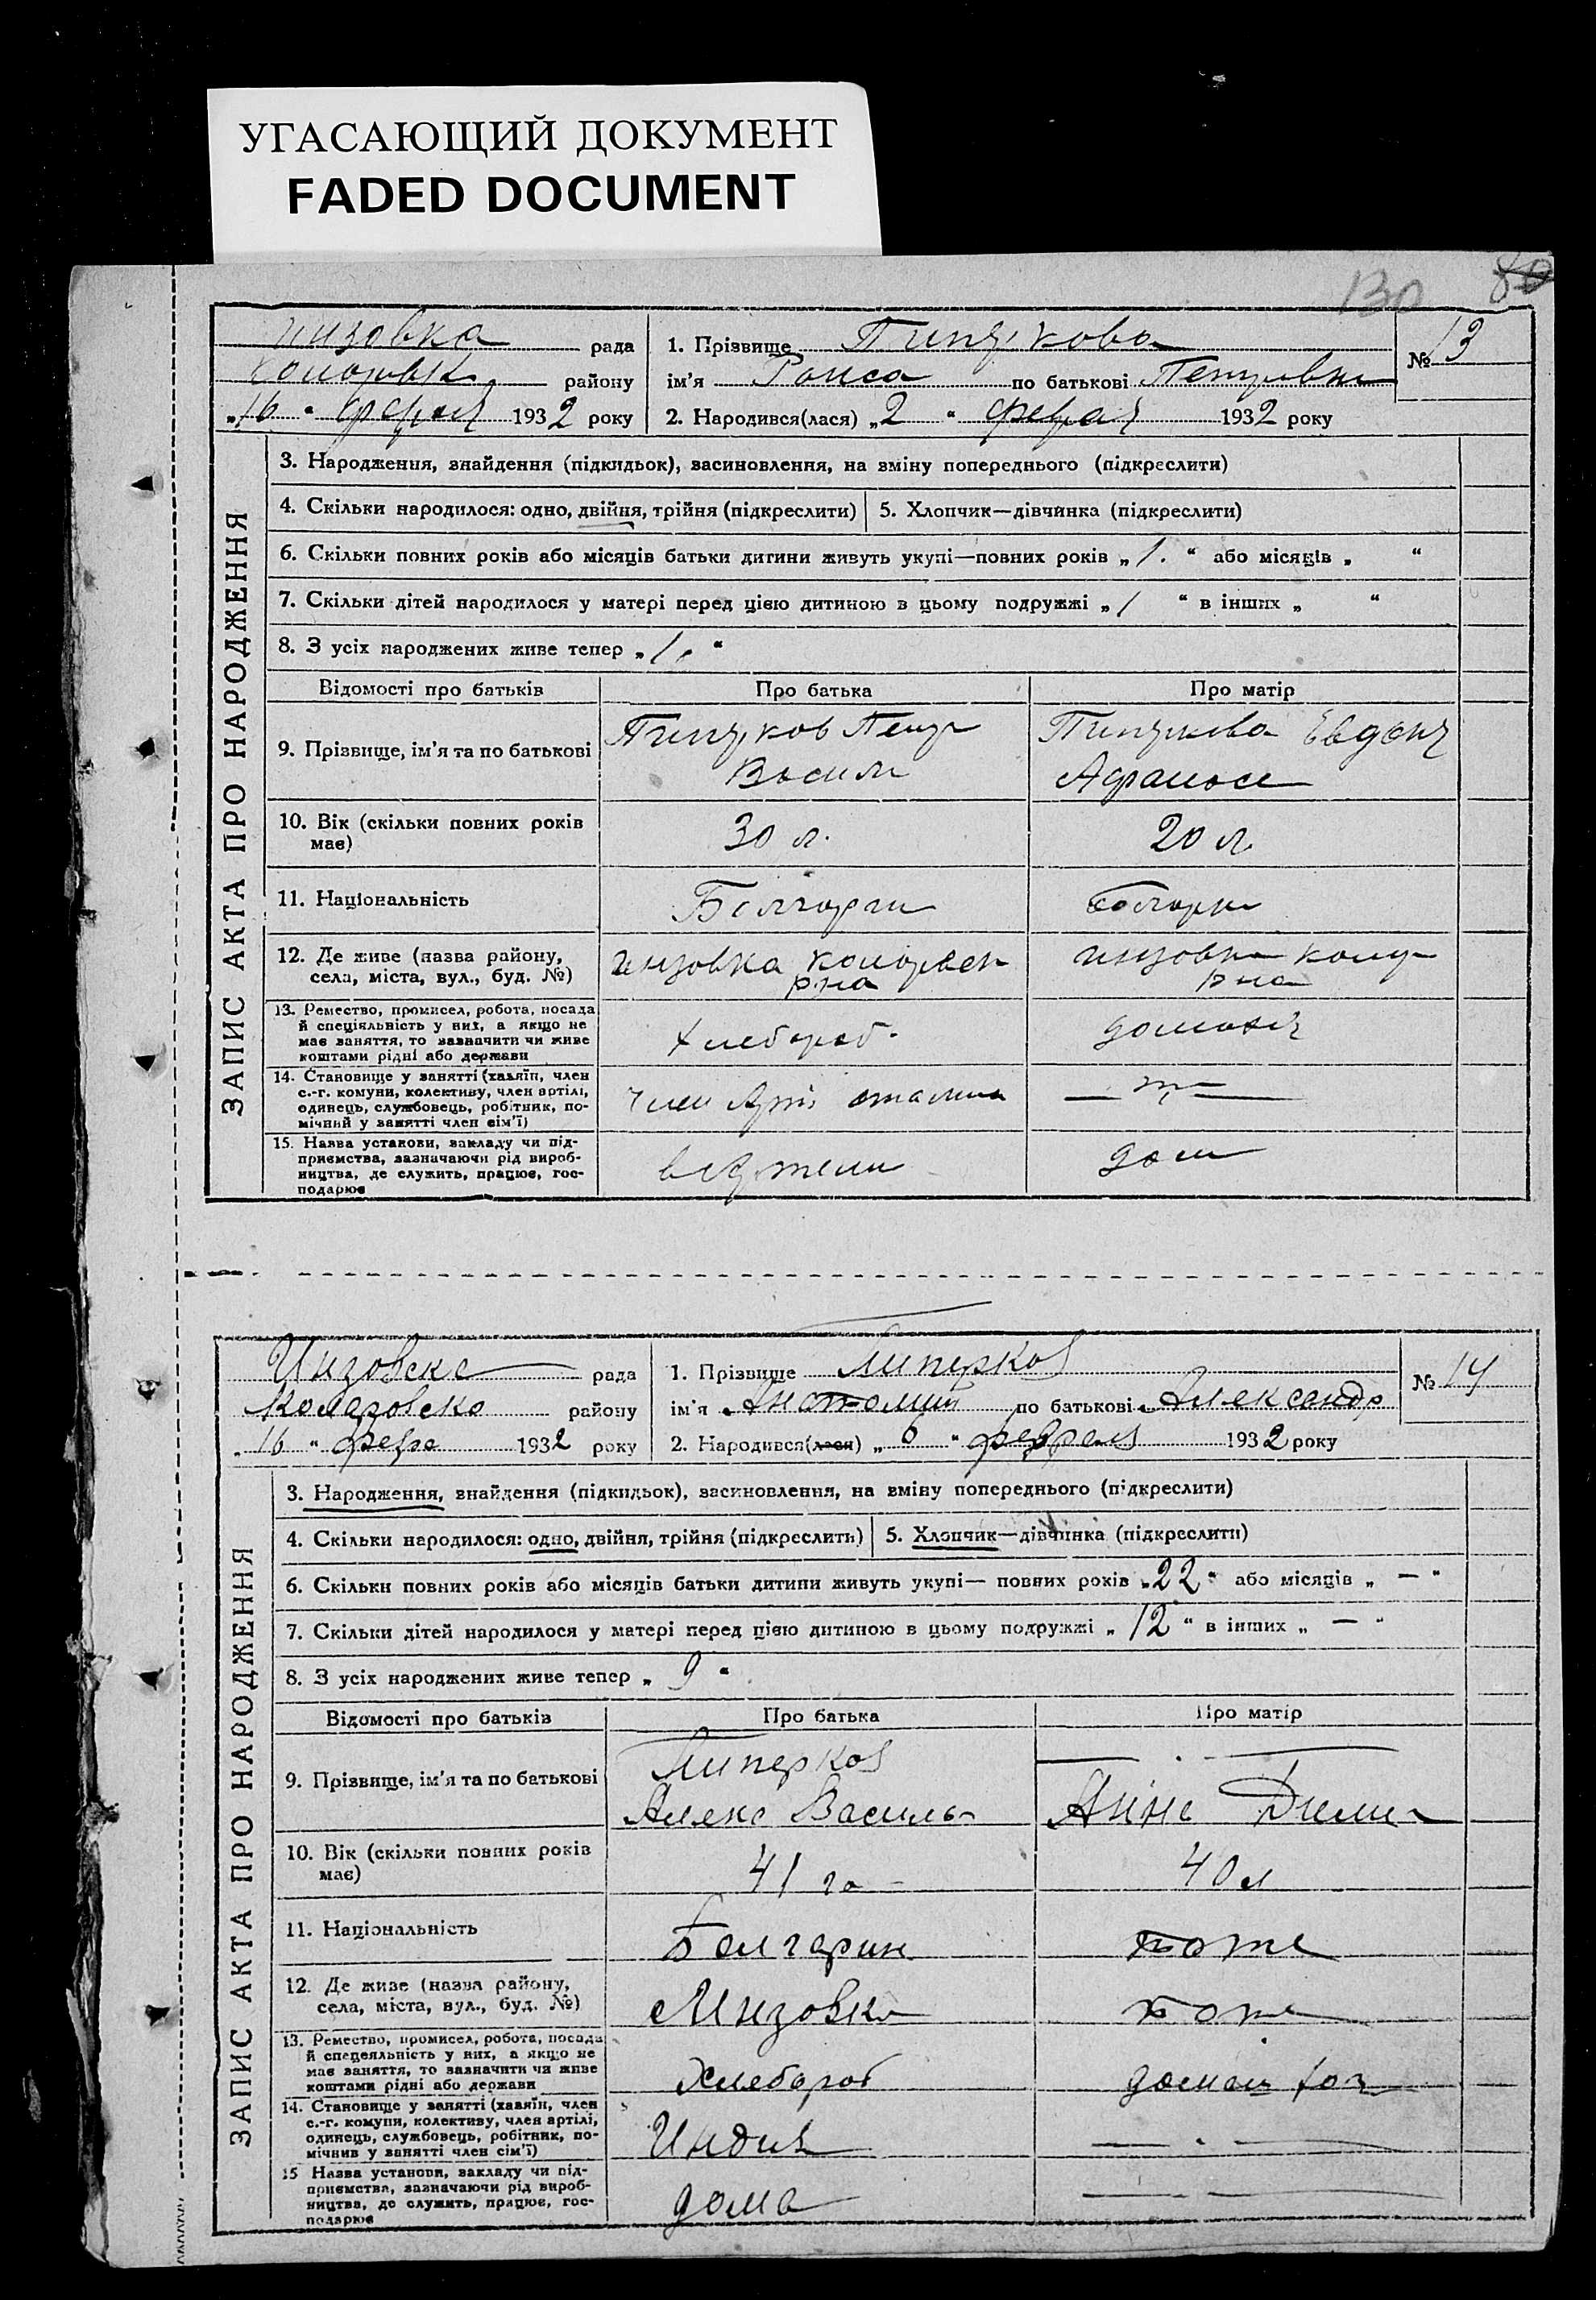 УГАСАЮЩИЙ ДОКУМЕНТ
FADED DOCUMENT
130 80
инзовка рада
району
„16 “ 1932 року
1. Прізвище
ім’я Раиса по батькові Петровна
№ 13
2. Народився(лася) „2 “ 1932 року
ЗАПИС АКТА ПРО НАРОДЖЕННЯ
3. Народження, знайдення (підкидьок), засиновлення, на зміну попереднього (підкреслити)
4. Скільки народилося: одно, двійня, трійня (підкреслити) 5. Хлопчик—дівчинка (підкреслити)
6. Скільки повних років або місяців батьки дитини живуть укупі—повних років „ 1. “ або місяців „ “
7. Скільки дітей народилося у матері перед цією дитиною в цьому подружжі „ 1 “ в інших „ “
8. З усіх народжених живе тепер „ 1. “
Відомості про батьків Про батька Про матір
9. Прізвище, ім’я та по батькові
Васили
Афанасе
10. Вік (скільки повних років має) 30 л. 20 л.
11. Національність Болгарин болгарк
12. Де живе (назва району, села, міста, вул., буд. №)
инзовка
р на
инзовка
р на
13. Ремество, промисел, робота, посада й спеціяльність у них, а якщо не має заняття, то зазначити чи живе коштами рідні або держави
хлебороб.
14. Становище у занятті (хазяїн, член с.-г. комуни, колективу, член артілі, одинець, службовець, робітник, помічний у занятті член сім’ї)
член Арт сталина
15. Назва установи, закладу чи підприємства, зазначаючи рід виробництва, де служить, працює, господарює
дом
Инзовске рада
Коларовско району
„ 16 “ февра 1932 року
1. Прізвище
ім’я Анатолий по батькові Александр
№ 14
2. Народився(лася) „ 6 “ февраля 1932 року
ЗАПИС АКТА ПРО НАРОДЖЕННЯ
3. Народження, знайдення (підкидьок), засиновлення, на зміну попереднього (підкреслити)
4. Скільки народилося: одно, двійня, трійня (підкреслить) 5. Хлопчик—дівчинка (підкреслити)
6. Скільки повних років або місяців батьки дитини живуть укупі— повних років „22“ або місяців „ — “
7. Скільки дітей народилося у матері перед цією дитиною в цьому подружжі „ 12 “ в інших „ — “
8. З усіх народжених живе тепер „ 9 “
Відомості про батьків Про батька Про матір
9. Прізвище, ім’я та по батькові
Алекс Василь
Анне Дими
10. Вік (скільки повних років має) 41 го 40 л
11. Національність Болгарин тоже
12. Де живе (назва району, села, міста, вул., буд. №)
Инзовка тоже
13. Ремество, промисел, робота, посада й спецеяльність у них, а якщо не має заняття, то зазначити чи живе коштами рідні або держави
Хлебороб домаш хоз
14. Становище у занятті (хазяїн, член с.-г. комуни, колективу, член артілі, одинець, службовець, робітник, помічнив у занятті член сім’ї)
15 Назва установи, закладу чи підприємства, зазначаючи рід виробництва, де служить, працює, господарює
дома